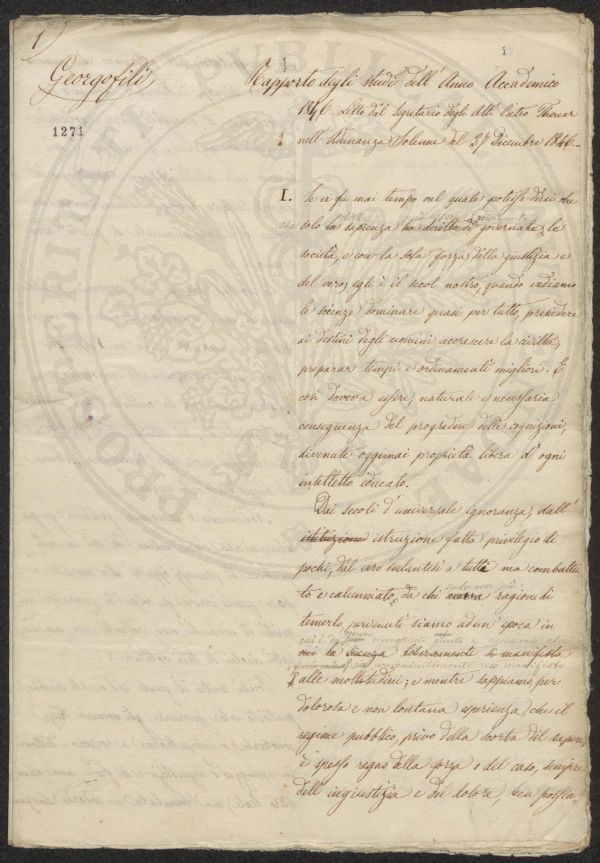 1)
1
Georgofili
1271
Rapporto degli studi dell'Anno Accademico
1846. Letto dal Segretario degli Atti Pietro Thouar
nell'Adunanza Solenne del 27 Dicembre 1846.
I. Se vi fu mai tempo nel quale potesse dirsi che
solo la sapienza ha diritto di governare le
società, e con la sola forza della giustizia e
del vero, egli è il secol nostro, quando vediamo
le scienze dominare quasi per tutto, presedere
ai destini degli uomini, accrescere la civiltà,
preparar tempi e ordinamenti migliori. E
così doveva essere, naturale e necessaria
conseguenza del progredire delle cognizioni,
divenute oggimai proprietà libera d'ogni
intelletto educato.
Dai secoli d'universale ignoranza, dall'
istituzione istruzione fatta privilegio di
pochi, dal vero svelantesi a tutti ma combattu
to e calunniato da chi aveva ragione di
temerlo, pervenuti siamo ad un'epoca in
cui la scienza liberamente si manifesta
alle moltitudini; e mentre sappiamo per
dolorosa e non lontana esperienza, che il
regime pubblico, privo della scorta del sapere,
è spesso regno della forza o del caso, sempre
dell'ingiustizia e del dolore,
PROSPERITATI PUBLICAE